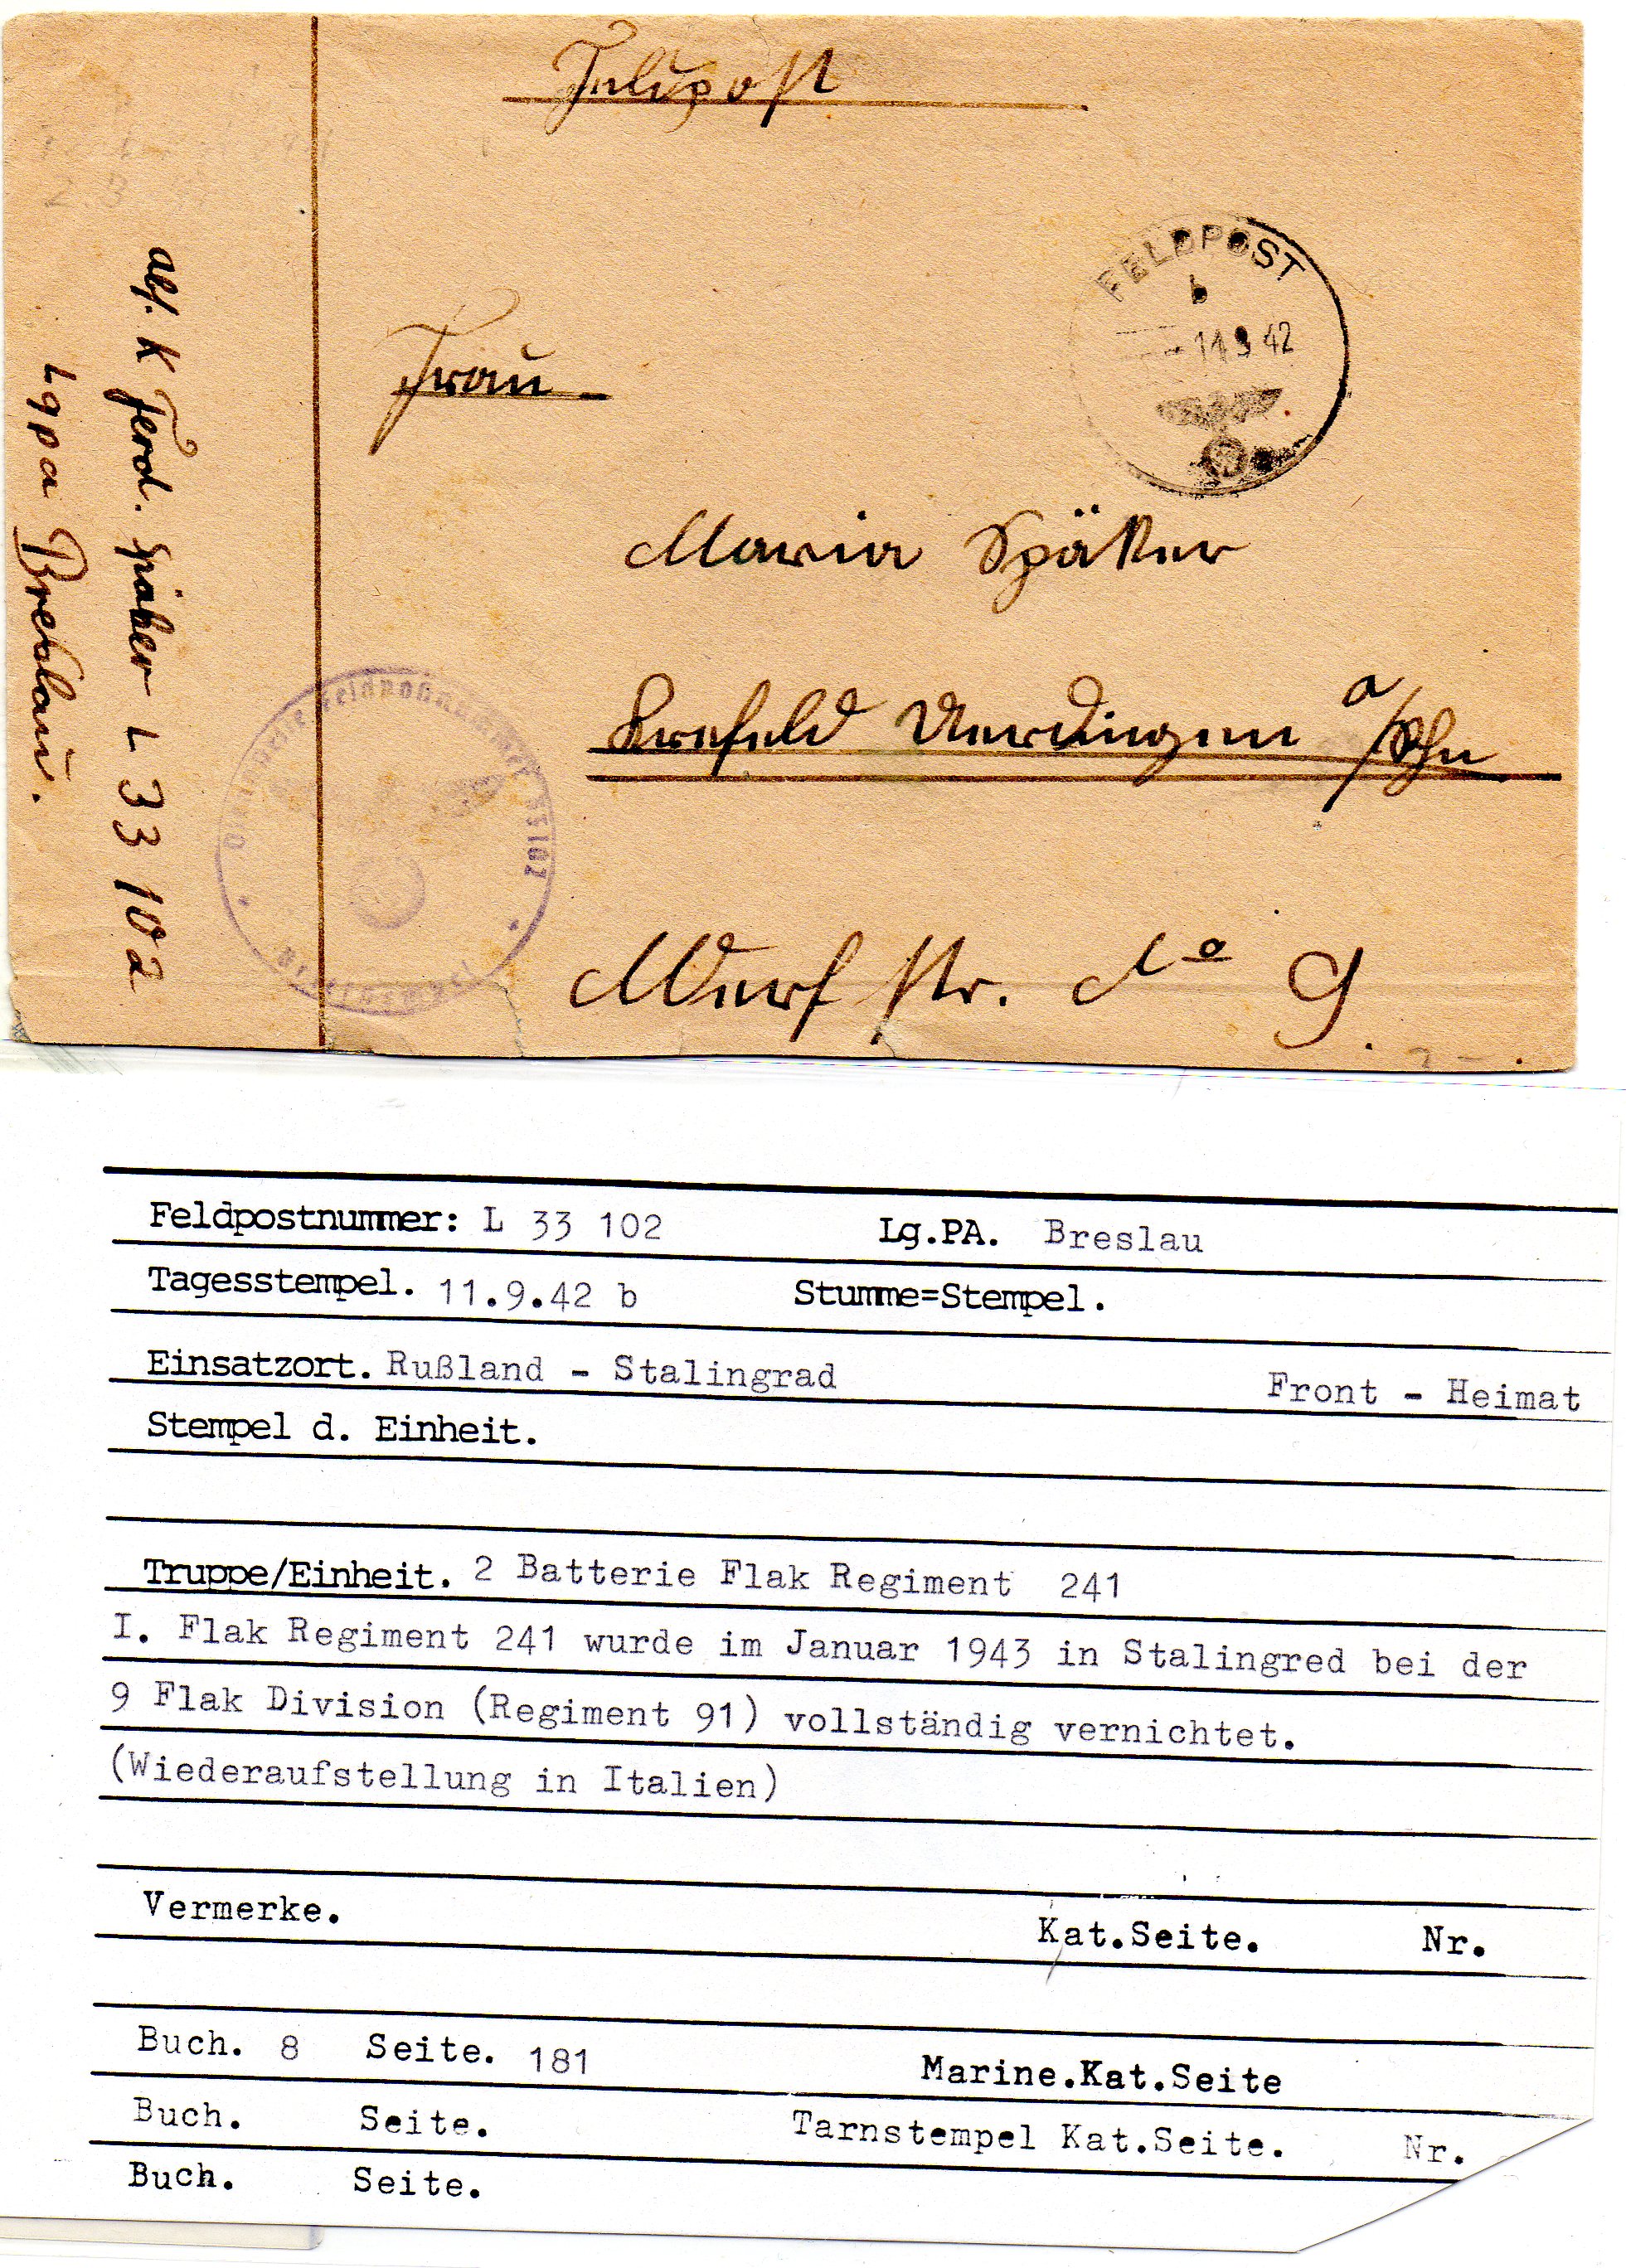 Feldpost
FELDPOST
b
11.9.42
Frau
Maria Später
Krefeld Uerdingen a/Rhn
Werfstr. No 9.
Abs. K Ferd. Später L 33 102
Lgpa Breslau.
Dienststelle Feldpostnummer
Briefstempel
Feldpostnummer: L 33 102 Lg.PA. Breslau
Tagesstempel. 11.9.42 b Stumme=Stempel.
Einsatzort. Rußland - Stalingrad Front - Heimat
Stempel d. Einheit.
Truppe/Einheit. 2 Batterie Flak Regiment 241
I. Flak Regiment 241 wurde im Januar 1943 in Stalingred bei der
9 Flak Division (Regiment 91) vollständig vernichtet.
(Wiederaufstellung in Italien)
Vermerke. Kat.Seite. Nr.
Buch. 8 Seite. 181 Marine.Kat.Seite
Buch. Seite. Tarnstempel Kat.Seite. Nr.
Buch. Seite.